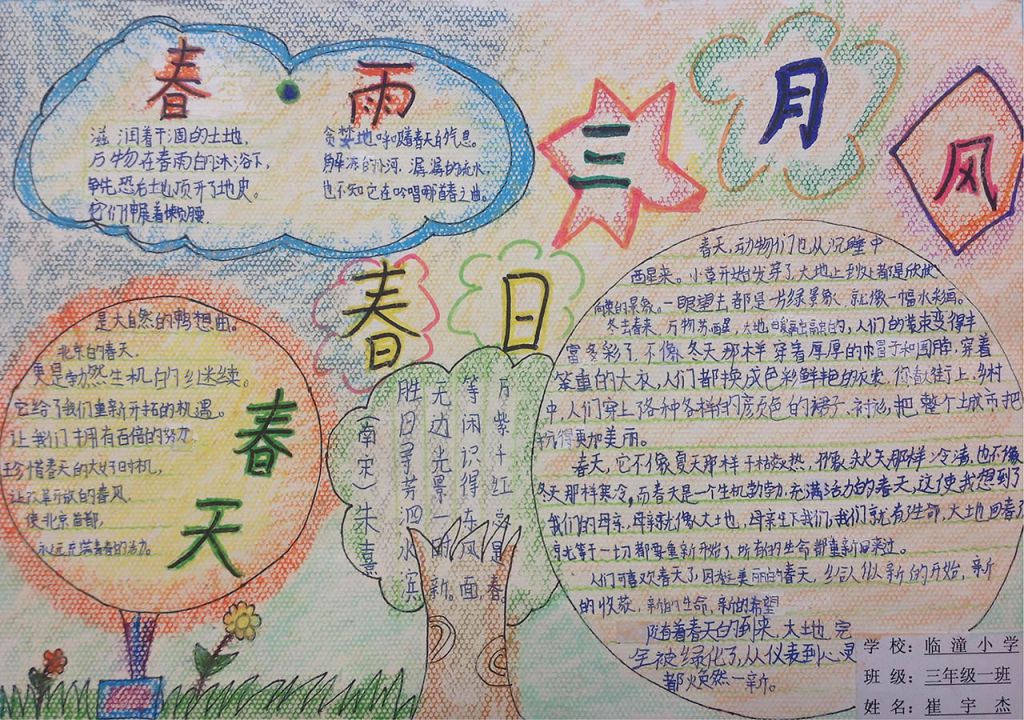 春·雨
滋润着干涸的土地,
万物在春雨的沐浴下,
争先恐后地顶开了地皮。
它们伸展着懒腰
贪婪地呼吸着春天的气息。
解冻的小河,潺潺的流水
也不知它在吟唱哪首春之曲。
三月风
春日
胜日寻芳泗水滨
无边光景一时新。
等闲识得东风面,
万紫千红总是春。
(南宋)朱熹
春天
是大自然的畅想曲。
北京的春天,
更是勃然生机的继续。
它给了我们重新开拓的机遇。
让我们拥有百倍的努力
珍惜春天的大好时机,
让改革开放的春风,
使北京首都,
永远充满青春的活力。
春天,动物们也从沉睡中
醒来。小草开始发芽了,大地上到处都是欣欣
向荣的景象。一眼望去都是一片绿景象,就像一幅水彩画。
冬去春来,万物苏醒,大地
人们的装束变得丰
富多彩了,不像冬天那样穿着厚厚的巾冒子和围脖,穿着
笨重的大衣,人们都换成色彩鲜艳的衣裳,你看,街上,乡村
中,人们穿上各种各样的颜色的裙子、衬衫,把整个土成市把
得更加美丽。
春天,它不像夏天那样干枯炎热,不像秋天那样冷清,也不像
冬天那样寒冷。而春天是一个生机勃勃,充满活力的春天,这使我想到了
我们的母亲,母亲就像大土地,母亲生下我们,我们就有了生命,大地回春
等于一切都要重新开始了,所有的生命都重新回来过。
人们可喜欢春天了,因为美丽的春天,给人们以新的开始,新
的收获,新的生命,新的希望
随着春天的到来,大地完
全被绿化了,从仪表到心灵
都火焕然一新。
学校:临潼小学
班级:三年级一班
姓名:崔宇杰